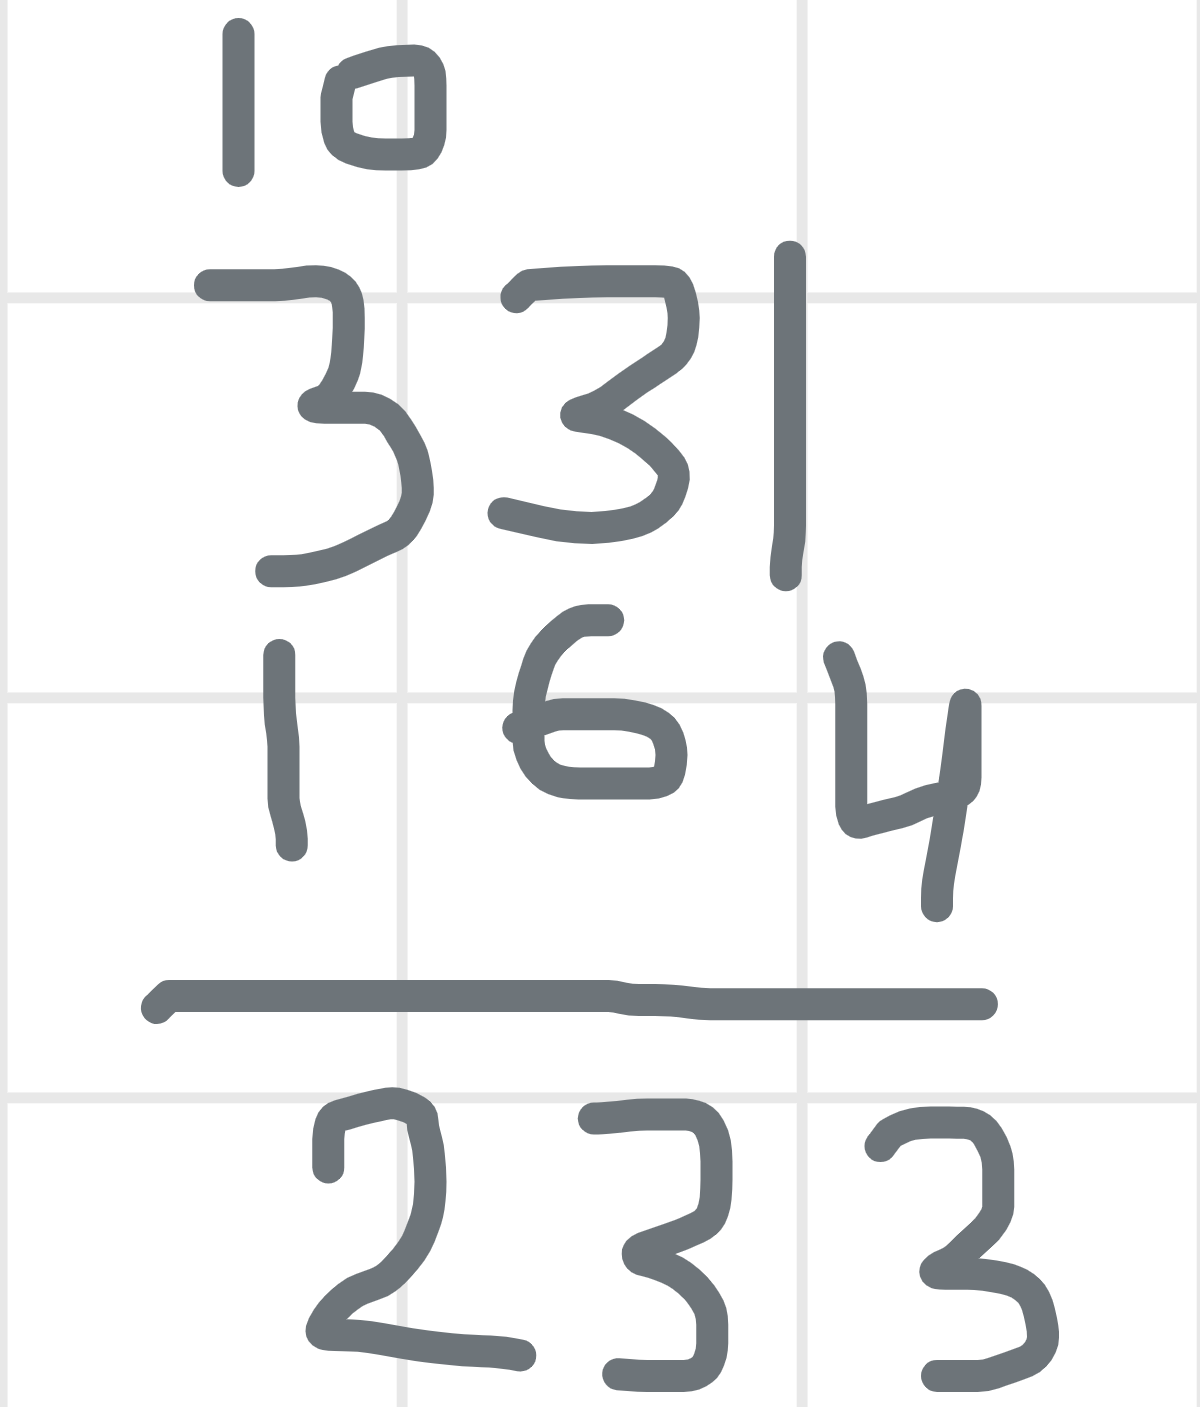 10
331
164
233